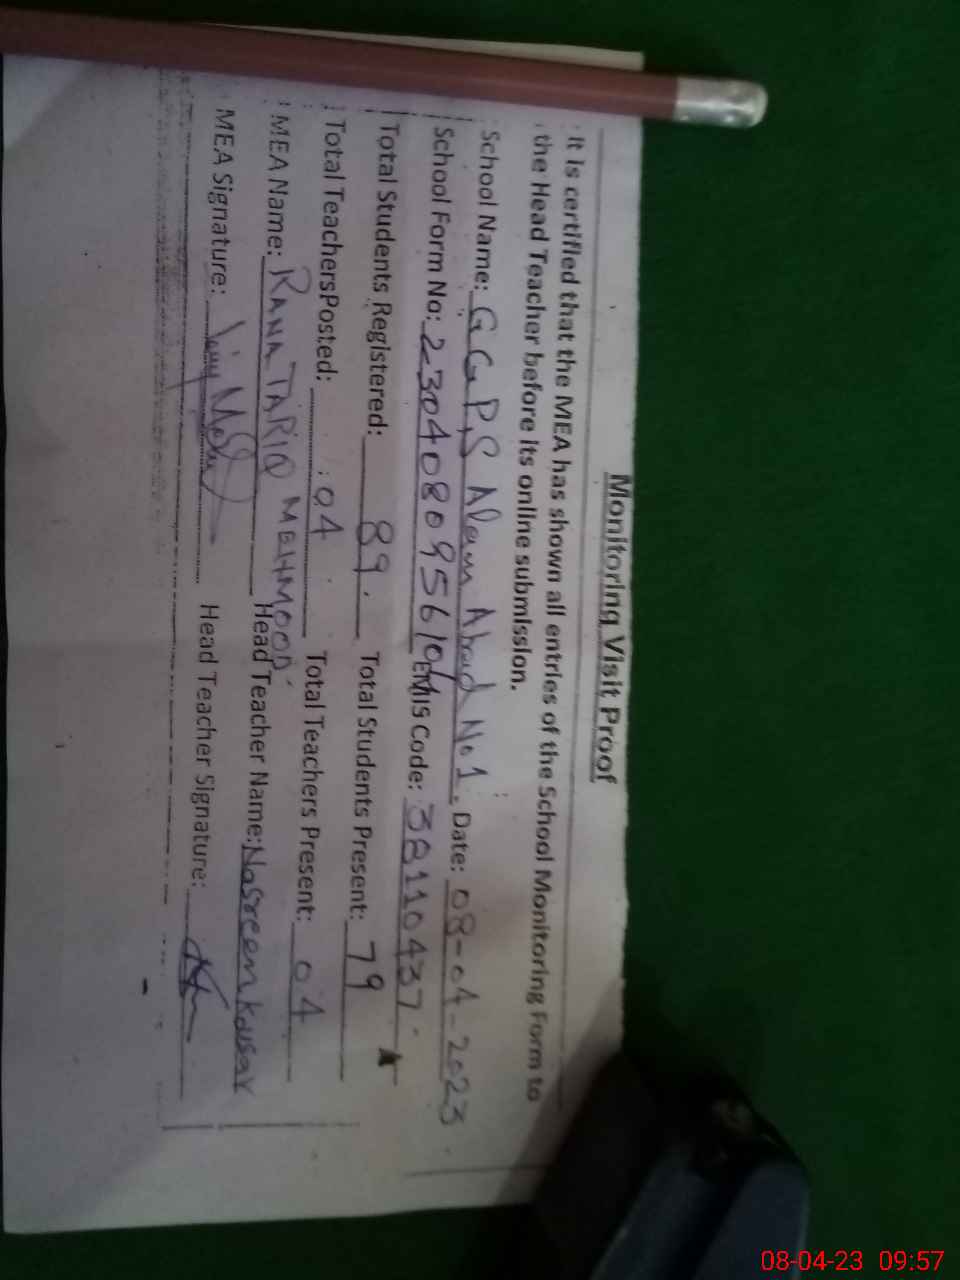 Monitoring Visit Proof
It is certified that the MEA has shown all entries of the School Monitoring Form to
the Head Teacher before its online submission.
School Name: GGPS Alam Abad No 1. Date: 08-04-2023.
School Form No: 2304080956101 EMIS Code: 38110437.
Total Students Registered: 89. Total Students Present: 79
Total TeachersPosted: 04 Total Teachers Present: 04
MEA Name: RANA TARIQ MEHMOOD. Head Teacher Name: Nasreen kausar
MEA Signature: Head Teacher Signature:
08-04-23 09:57